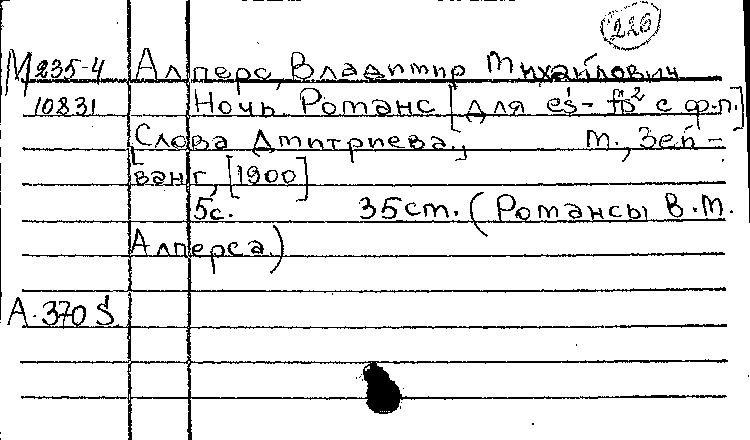 226
М 235-4 Алперс, Владимир Михайлович
10831 Ночь. Романс [для es¹- fis² с ф.п.]
Слова Дмитриева. М., Зей-
ванг, [1900]
5с. 35см. (Романсы В.М.
Алперса.)
А.370 S.